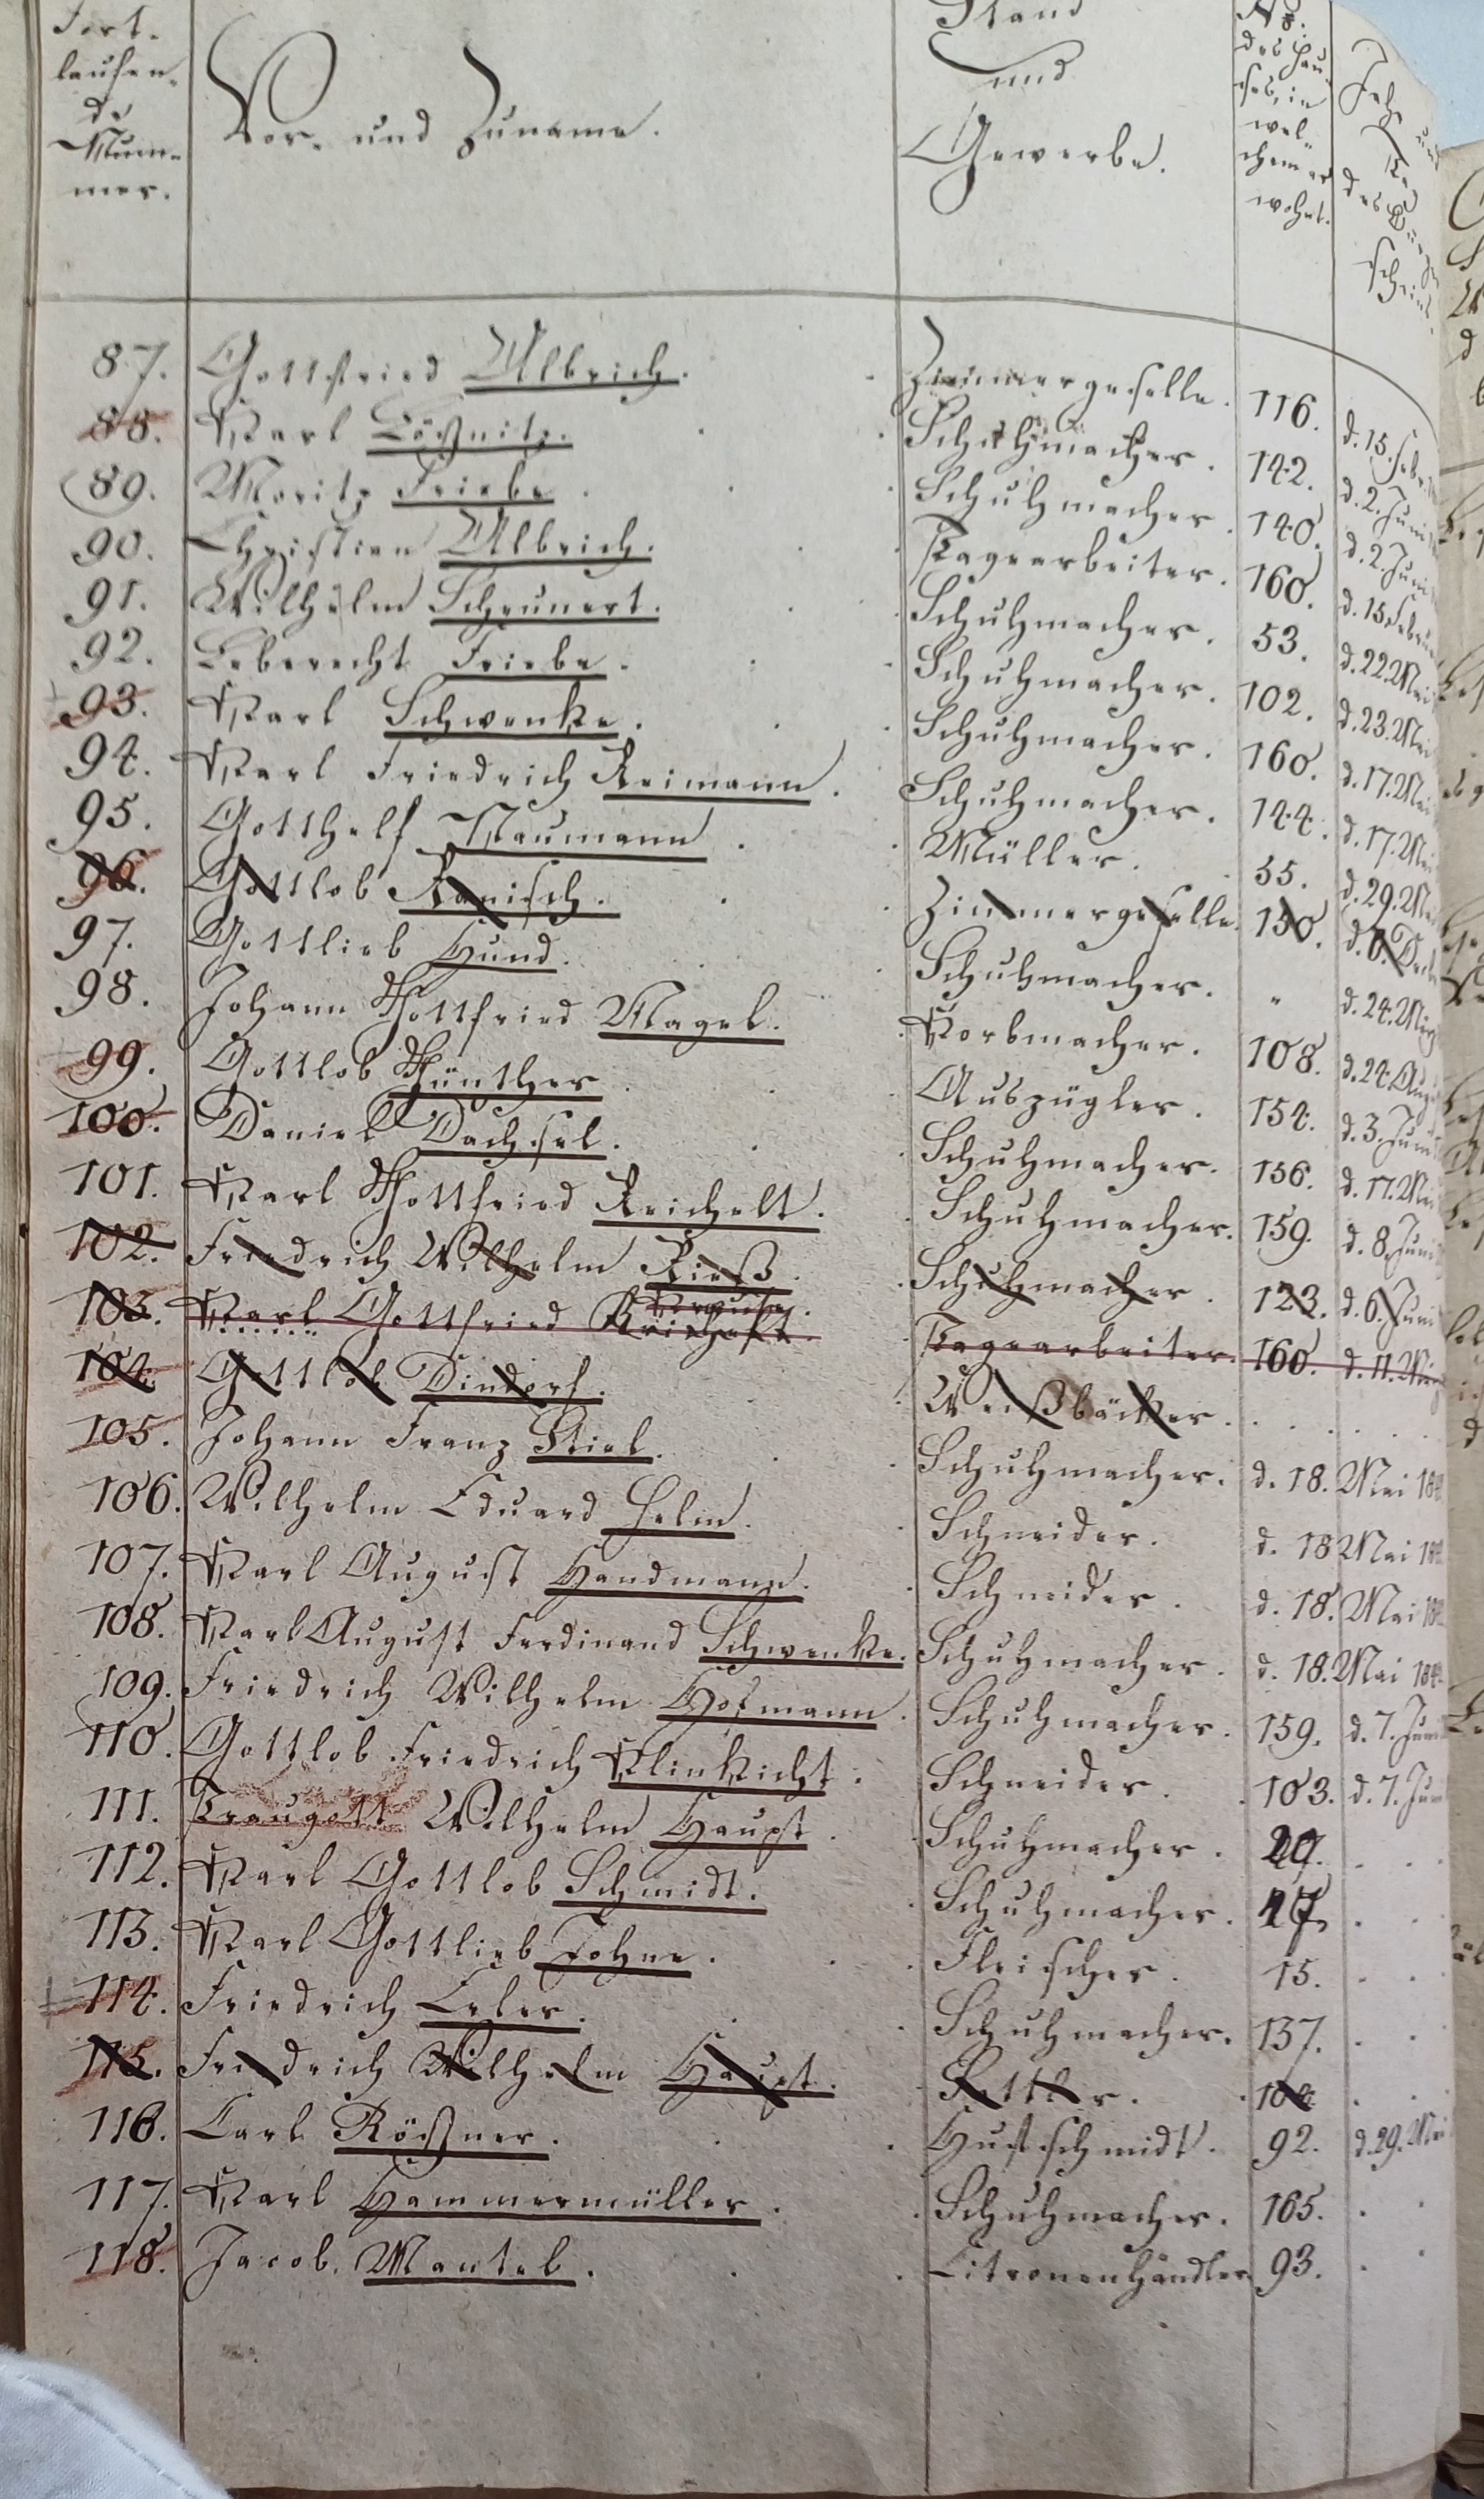 Fort-
laufen-
de
Num-
mer.
Vor- und Zuname.
Stand
und
Gewerbe.
No.
des Hau-
ses, in
wel-
chem er
wohnt.
Jahr und
Tag
des Bürger
scheins.
87. Gottfried Ulbrich. Zimmergeselle. 116. d. 15. Febr.
88. Karl Lößnitz. Schuhmacher. 142. d. 2. Juni
89. Moritz Friebe. Schuhmacher. 140. d. 2. Juni
90. Christian Ulbrich. Tagearbeiter. 160. d. 15 Februar
91. Wilhelm Scheunert. Schuhmacher. 53. d. 22. Mai
92. Leberecht Friebe. Schuhmacher. 102. d. 23. Mai
93. Karl Schwenke. Schuhmacher. 160. d. 17. Mai
94. Karl Friedrich Reimann. Schuhmacher. 144. d. 17. Mai
95. Gotthelf Naumann. Müller. 55. d. 29. Mai
96. Gottlob Ranisch. Zimmergeselle. 150. d. 6. Decbr
97. Gottlieb Hund. Schuhmacher. " d. 24. März
98. Johann Gottfried Nagel. Korbmacher. 108. d. 24. Aug
99. Gottlob Günther. Auszügler. 154. d. 3. Juni
100. Daniel Dachsel. Schuhmacher. 156. d. 17. Mai
101. Karl Gottfried Reichelt. Schuhmacher. 159. d. 8. Juni
102. Friedrich Wilhelm Rieß. Schuhmacher. 123. d. 6. Juni
103. Karl Gottfried Tagearbeiter. 160. d. 11. März
104. Gottlob Dindorf. Weißbäcker.
105. Johann Franz Stiel. Schuhmacher. d. 18. Mai 18
106. Wilhelm Eduard Helm. Schneider. d. 18 Mai 18
107. Karl August Handmann. Schneider. d. 18. Mai 18
108. Karl August Ferdinand Schwenke. Schuhmacher. d. 18. Mai 184
109. Friedrich Wilhelm Hofmann. Schuhmacher. 159. d. 7. Juni
110. Gottlob Friedrich Klinkicht. Schneider. 103. d. 7. Juni
111. Traugott Wilhelm Haupt. Schuhmacher. 29.
112. Karl Gottlob Schmidt. Schuhmacher. 17.
113. Karl Gottlieb Johne. Fleischer. 15.
114. Friedrich Erler. Schuhmacher. 137.
115. Friedrich Wilhelm Haupt. Sattler. 104.
116. Carl Rößner. Hufschmidt. 92. d. 29. Mai
117. Karl Hammermüller. Schuhmacher. 165.
118. Jacob Mantel. Citronenhändler 93.